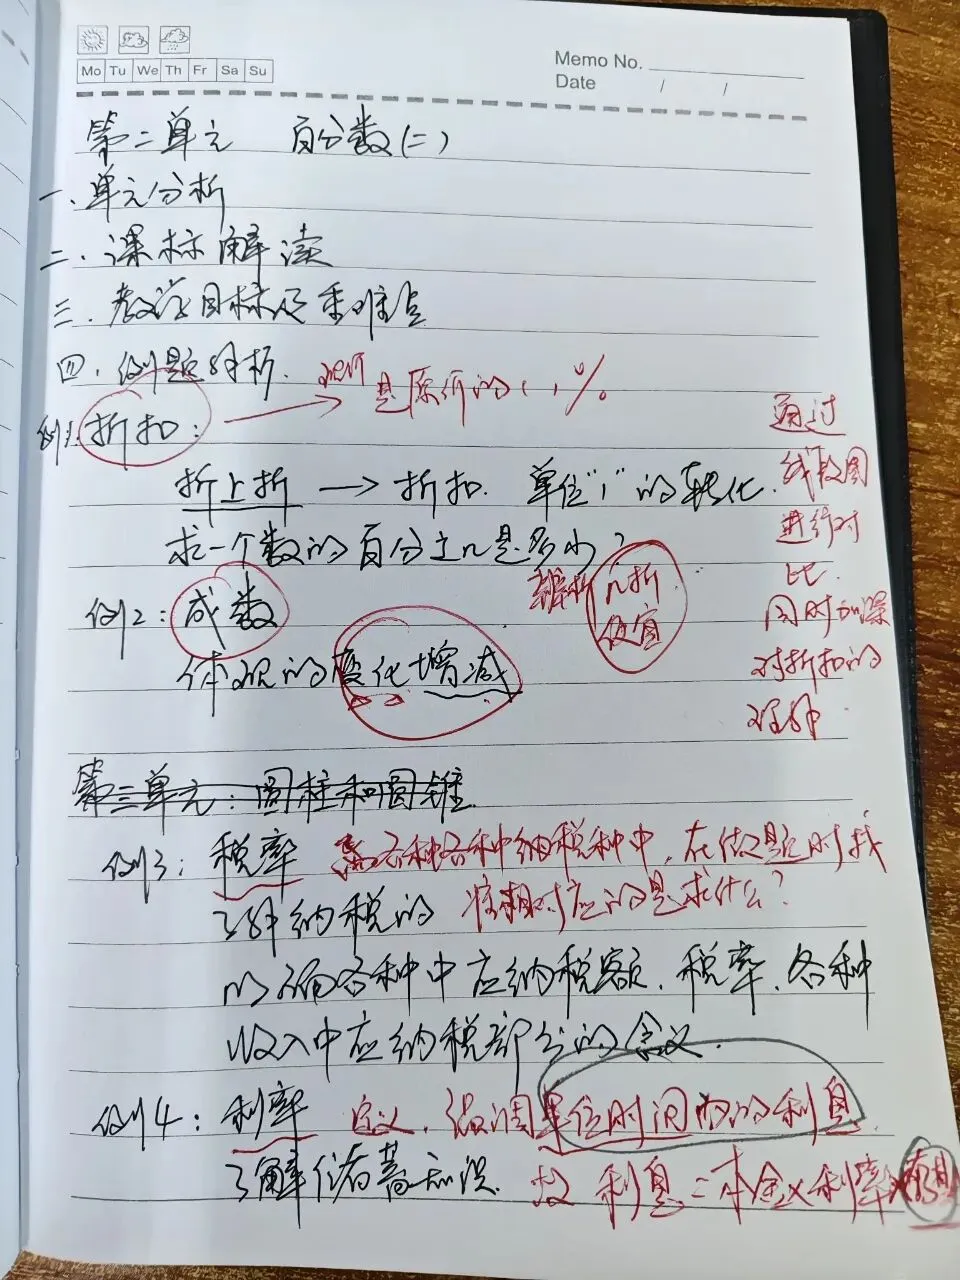 Mo Tu We Th Fr Sa Su
Memo No.
Date / /
第二单元 百分数(二)
一.单元分析
二.课标解读
三.教学目标及重难点
四.例题解析.
现价是原价的( )%
例1.折扣:
折上折 → 折扣. 单位"1"的转化.
求一个数的百分之几是多少?
通过
线段图
进行对
比.
同时加深
对折扣的
理解.
辨析 几折
便宜
例2:成数
体现的变化增减
第三单元:圆柱和圆锥
例3:税率 各种各种纳税种中,在做题时找
准相对应的是求什么?
了解纳税的
以及各种中应纳税额.税率.各种
收入中应纳税部分的含义.
例4:利率 定义.强调单位时间内的利息
了解储蓄知识.
故 利息=本金×利率×存期